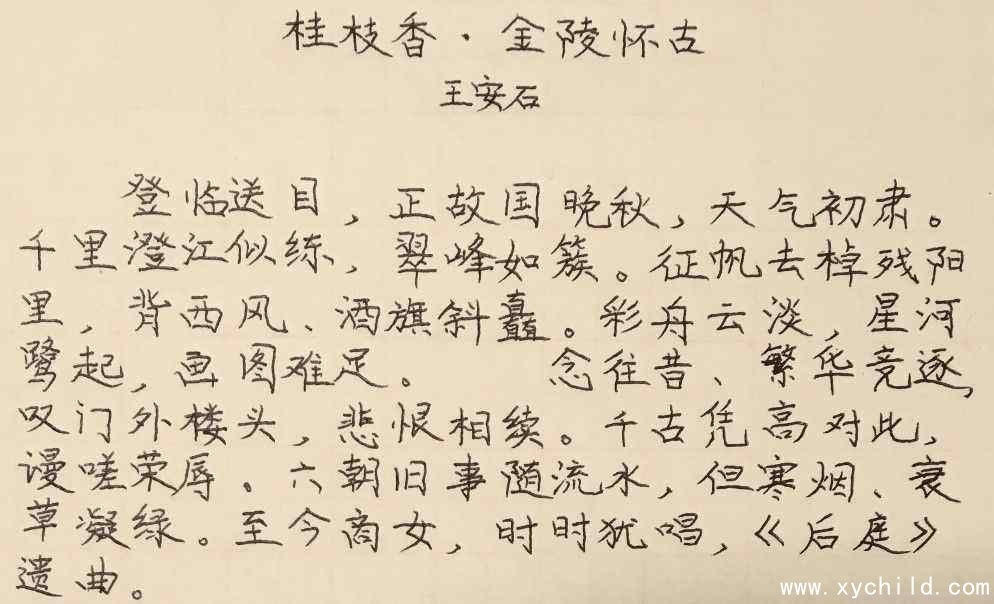 桂枝香·金陵怀古
王安石
登临送目，正故国晚秋，天气初肃。
千里澄江似练，翠峰如簇。征帆去棹残阳
里，背西风、酒旗斜矗。彩舟云淡，星河
鹭起，画图难足。 念往昔、繁华竞逐，
叹门外楼头，悲恨相续。千古凭高对此，
谩嗟荣辱。六朝旧事随流水，但寒烟、衰
草凝绿。至今商女，时时犹唱，《后庭》
遗曲。
www.xychild.com